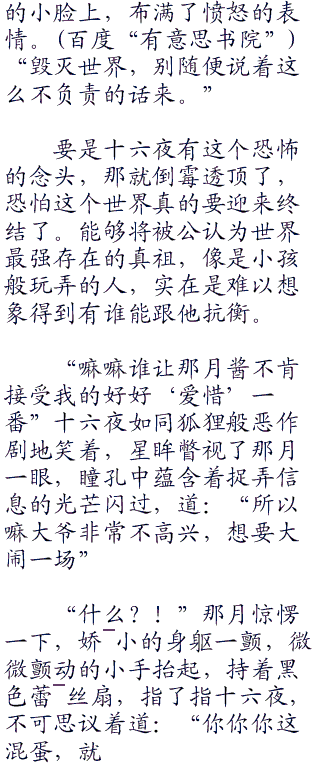 的小脸上，布满了愤怒的表
情。(百度“有意思书院”)
“毁灭世界，别随便说着这
么不负责的话来。”
要是十六夜有这个恐怖
的念头，那就倒霉透顶了，
恐怕这个世界真的要迎来终
结了。能够将被公认为世界
最强存在的真祖，像是小孩
般玩弄的人，实在是难以想
象得到有谁能跟他抗衡。
“嘛嘛谁让那月酱不肯
接受我的好好‘爱惜’一
番”十六夜如同狐狸般恶作
剧地笑着，星眸瞥视了那月
一眼，瞳孔中蕴含着捉弄信
息的光芒闪过，道：“所以
嘛大爷非常不高兴，想要大
闹一场”
“什么？！”那月惊愣
一下，娇¯小的身躯一颤，微
微颤动的小手抬起，持着黑
色蕾¯丝扇，指了指十六夜，
不可思议着道：“你你你这
混蛋，就